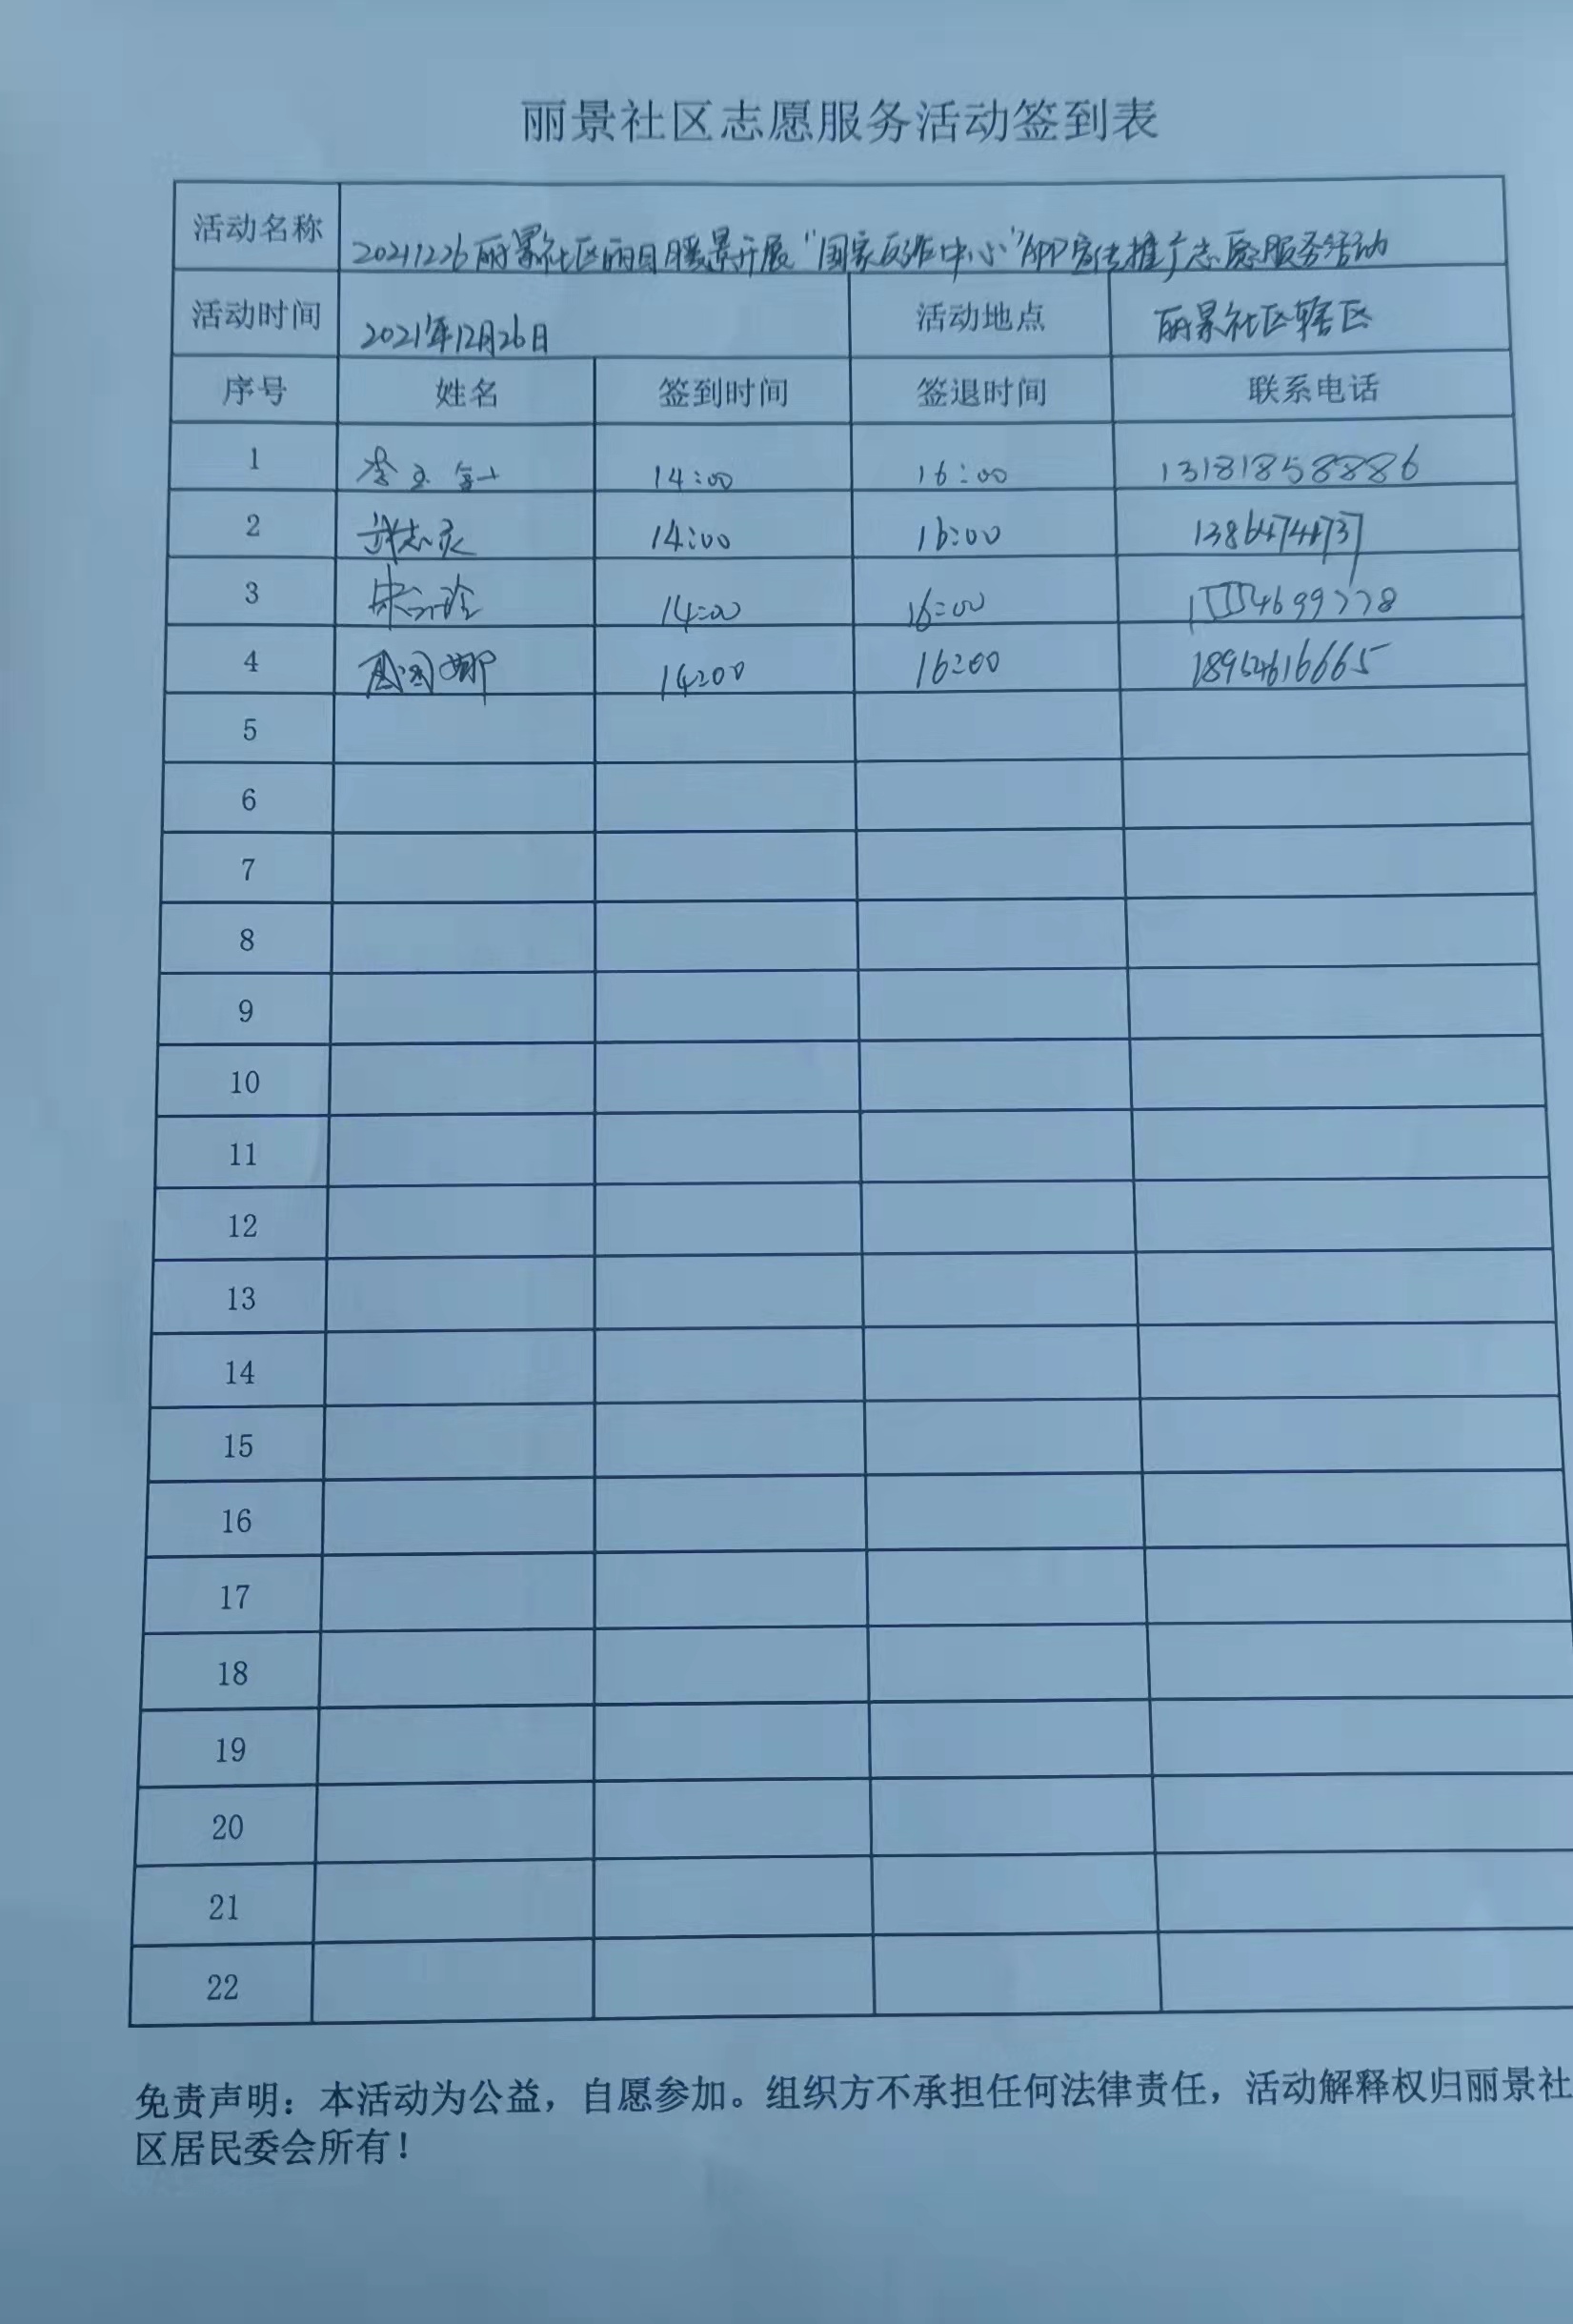 丽景社区志愿服务活动签到表
活动名称 20211226丽景社区丽日暖景开展“国家反诈中心”APP宣传推广志愿服务活动
活动时间 2021年12月26日 活动地点 丽景社区辖区
序号 姓名 签到时间 签退时间 联系电话
1 14:00 16:00 13181858886
2 14:00 16:00 13864741737
3 14:00 16:00 15554699778
4 14:00 16:00 18954616665
5
6
7
8
9
10
11
12
13
14
15
16
17
18
19
20
21
22
免责声明：本活动为公益，自愿参加。组织方不承担任何法律责任，活动解释权归丽景社
区居民委会所有！